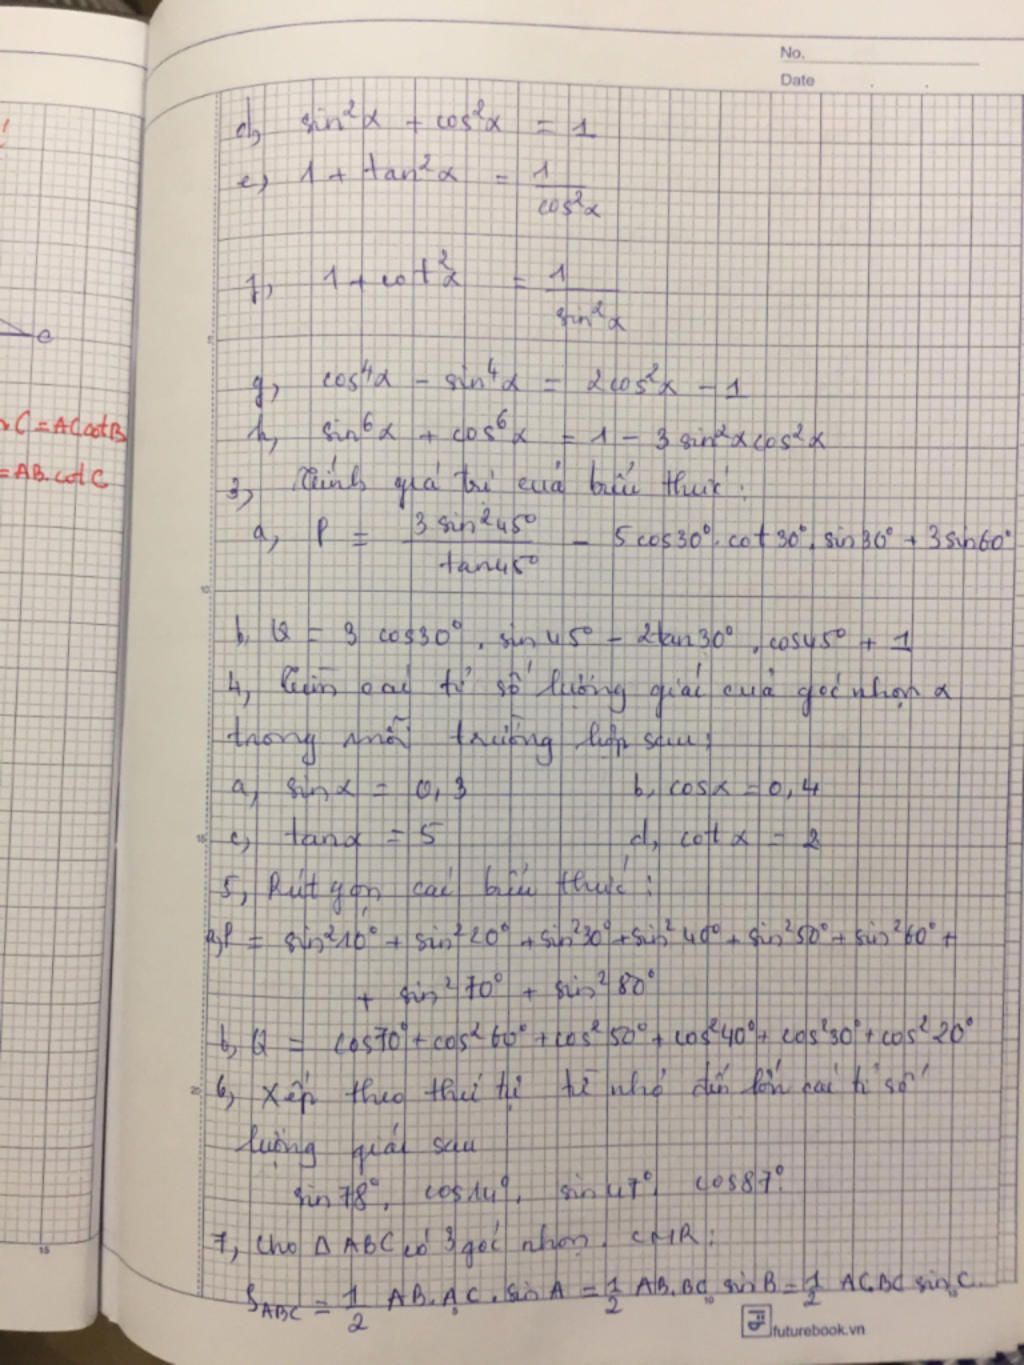 No.
Date
d, sin²α + cos²α = 1
e, 1 + tan²α = 1/cos²α
f, 1 + cot²α = 1/sin²α
g, cos⁴α - sin⁴α = 2cos²α - 1
h, sin⁶α + cos⁶α = 1 - 3sin²αcos²α
3, Tính giá trị của biểu thức:
a, P = 3sin²45°/tan45° - 5cos30°.cot30°.sin30° + 3sin60°
b, Q = 3cos30°.sin45° - 2tan30°.cos45° + 1
4, Tìm các tỉ số lượng giác của góc nhọn α
trong mỗi trường hợp sau:
a, sinα = 0,3 b, cosα = 0,4
c, tanα = 5 d, cotα = 2
5, Rút gọn các biểu thức:
a, P = sin²10° + sin²20° + sin²30° + sin²40° + sin²50° + sin²60° +
+ sin²70° + sin²80°
b, Q = cos70° + cos²60° + cos²50° + cos²40° + cos²30° + cos²20°
6, Xếp theo thứ tự từ nhỏ đến lớn các tỉ số
lượng giác sau
sin78°, cos14°, sin47°, cos87°
7, Cho ΔABC có 3 góc nhọn. CMR:
S_ABC = 1/2 AB.AC.sinA = 1/2 AB.BC sinB = 1/2 AC.BC sinC.
futurebook.vn
C
C = AC cotB
= AB.cotC
5
10
15
20
15